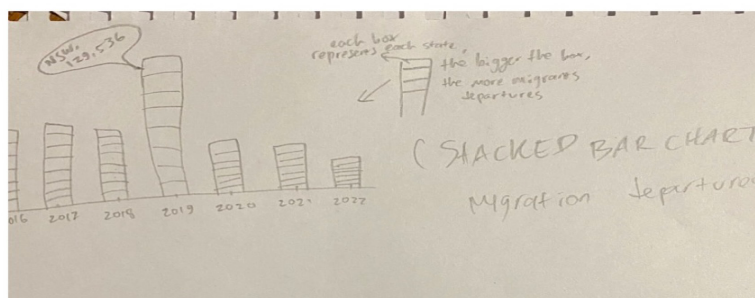 NSW,
129,536
each box
represents each state,
the bigger the box,
the more migrants
departures
(STACKED BAR CHART
Migration departures
016 2017 2018 2019 2020 2021 2022